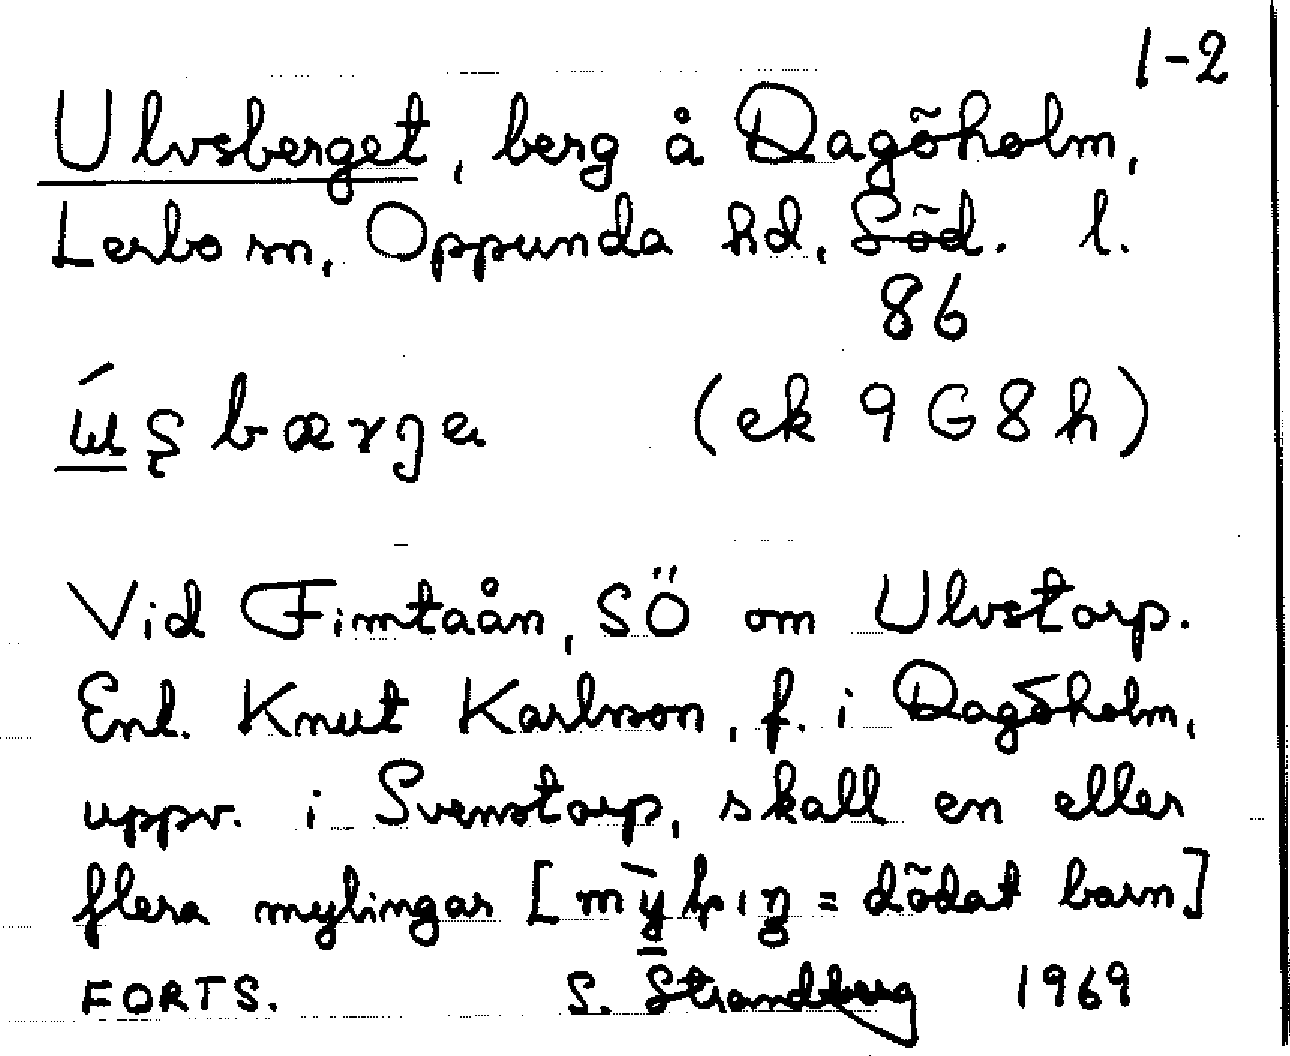 1-2
Ulvsberget, berg å Dagöholm,
Lerbo sn, Oppunda hd, Söd. l.
86
(ek 9G8h)
Vid Fimtaån, SÖ om Ulvstorp.
Enl. Knut Karlsson, f. i Dagöholm,
uppv. i Svenstorp, skall en eller
flera mylingar [ = dödat barn]
FORTS. S. Strandberg 1969